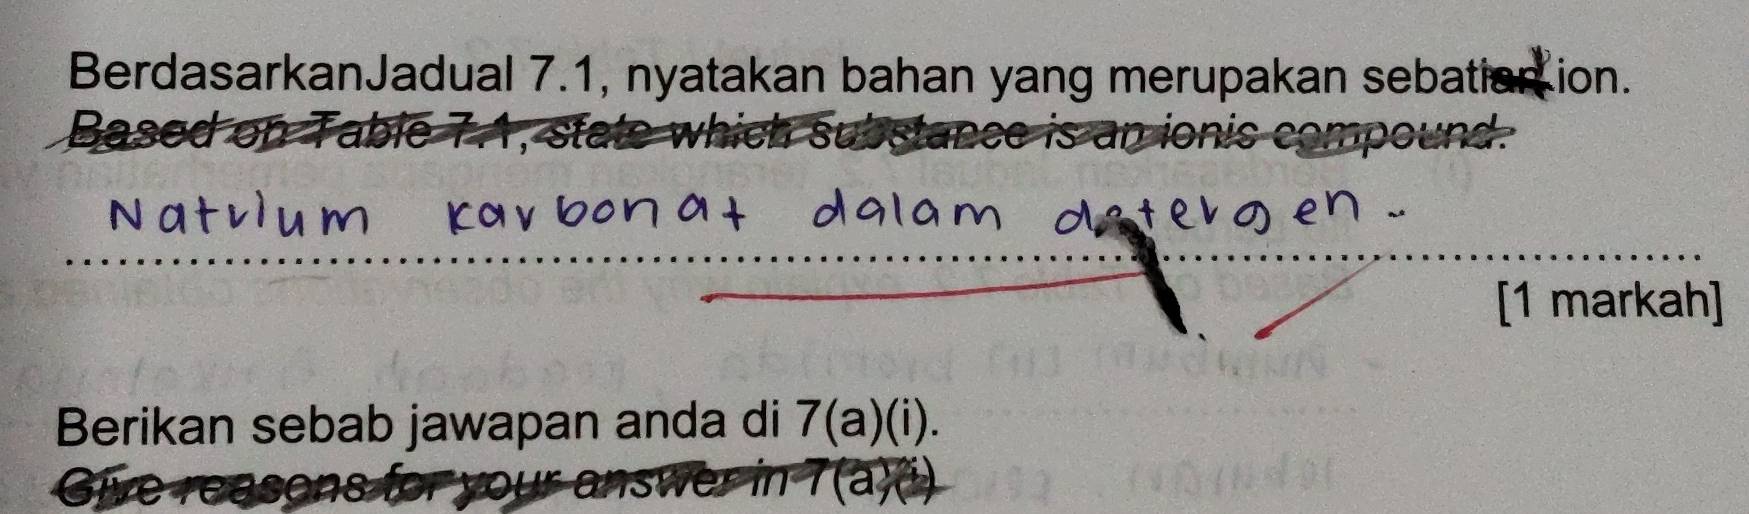 BerdasarkanJadual 7.1, nyatakan bahan yang merupakan sebatian ion.
Based on Table 7.1, state which substance is an ionic compound.
Natrium karbonat dalam detergen.
[1 markah]
Berikan sebab jawapan anda di 7(a)(i).
Give reasons for your answer in 7(a)(i)